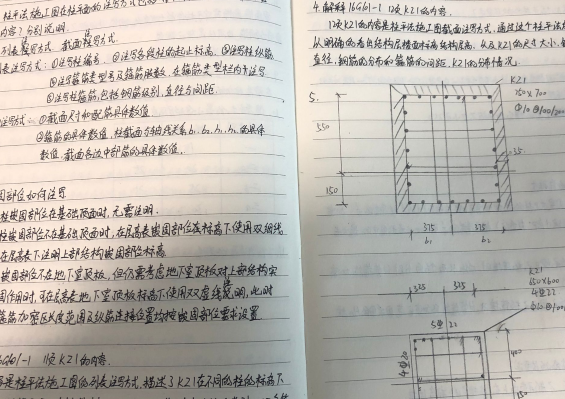 柱平法施工图在柱平面的注写方式包
内容?分别说明.
列表注写方式 截面注写方式.
表注写方式:①注写柱编号 ②注写各段柱的起止标高 ③注写柱纵筋
注写箍筋类型号及箍筋肢数,在箍筋类型栏内注写
⑥注写柱箍筋,包括钢筋级别、直径与间距.
注写方式: ①截面尺寸和配筋具体数值
②箍筋的具体数值,柱截面与轴线关系b₁.b₂.h₁.h₂的具体
数值.截面各边中部筋的具体数值.
固部位如何注写
柱嵌固部位在基础顶面时,无需注明.
柱嵌固部位不在基础顶面时,在层高表嵌固部位标高下使用双细线
在层高表下注明上部结构嵌固部位标高.
嵌固部位不在地下室顶板,但仍需考虑地下室顶板对上部结构实
固作用时,可在层高表地下室顶板标高下使用双虚线注明,此时
箍筋加密区长度范围及纵筋连接位置均按嵌固部位要求设置
16G101-1 11页KZ1的内容.
容是柱平法施工图的列表注写方式,描述了KZ1在不同的柱的标高下
4.解释16G101-1 12页KZ1的内容.
12页KZ1的内容是柱平法施工图截面注写方式,通过这个柱平法
从明确的看出结构层楼面标高结构层高,以及KZ1的尺寸大小,
直径,钢筋的分布和箍筋的间距,KZ1的分布情况.
5.
KZ1
750×700
Φ10@100/200
550
150
35
375 375
b₁ b₂
KZ1
650×600
4Φ22
Φ10@100
325 325
5Φ22
4Φ20
450
150